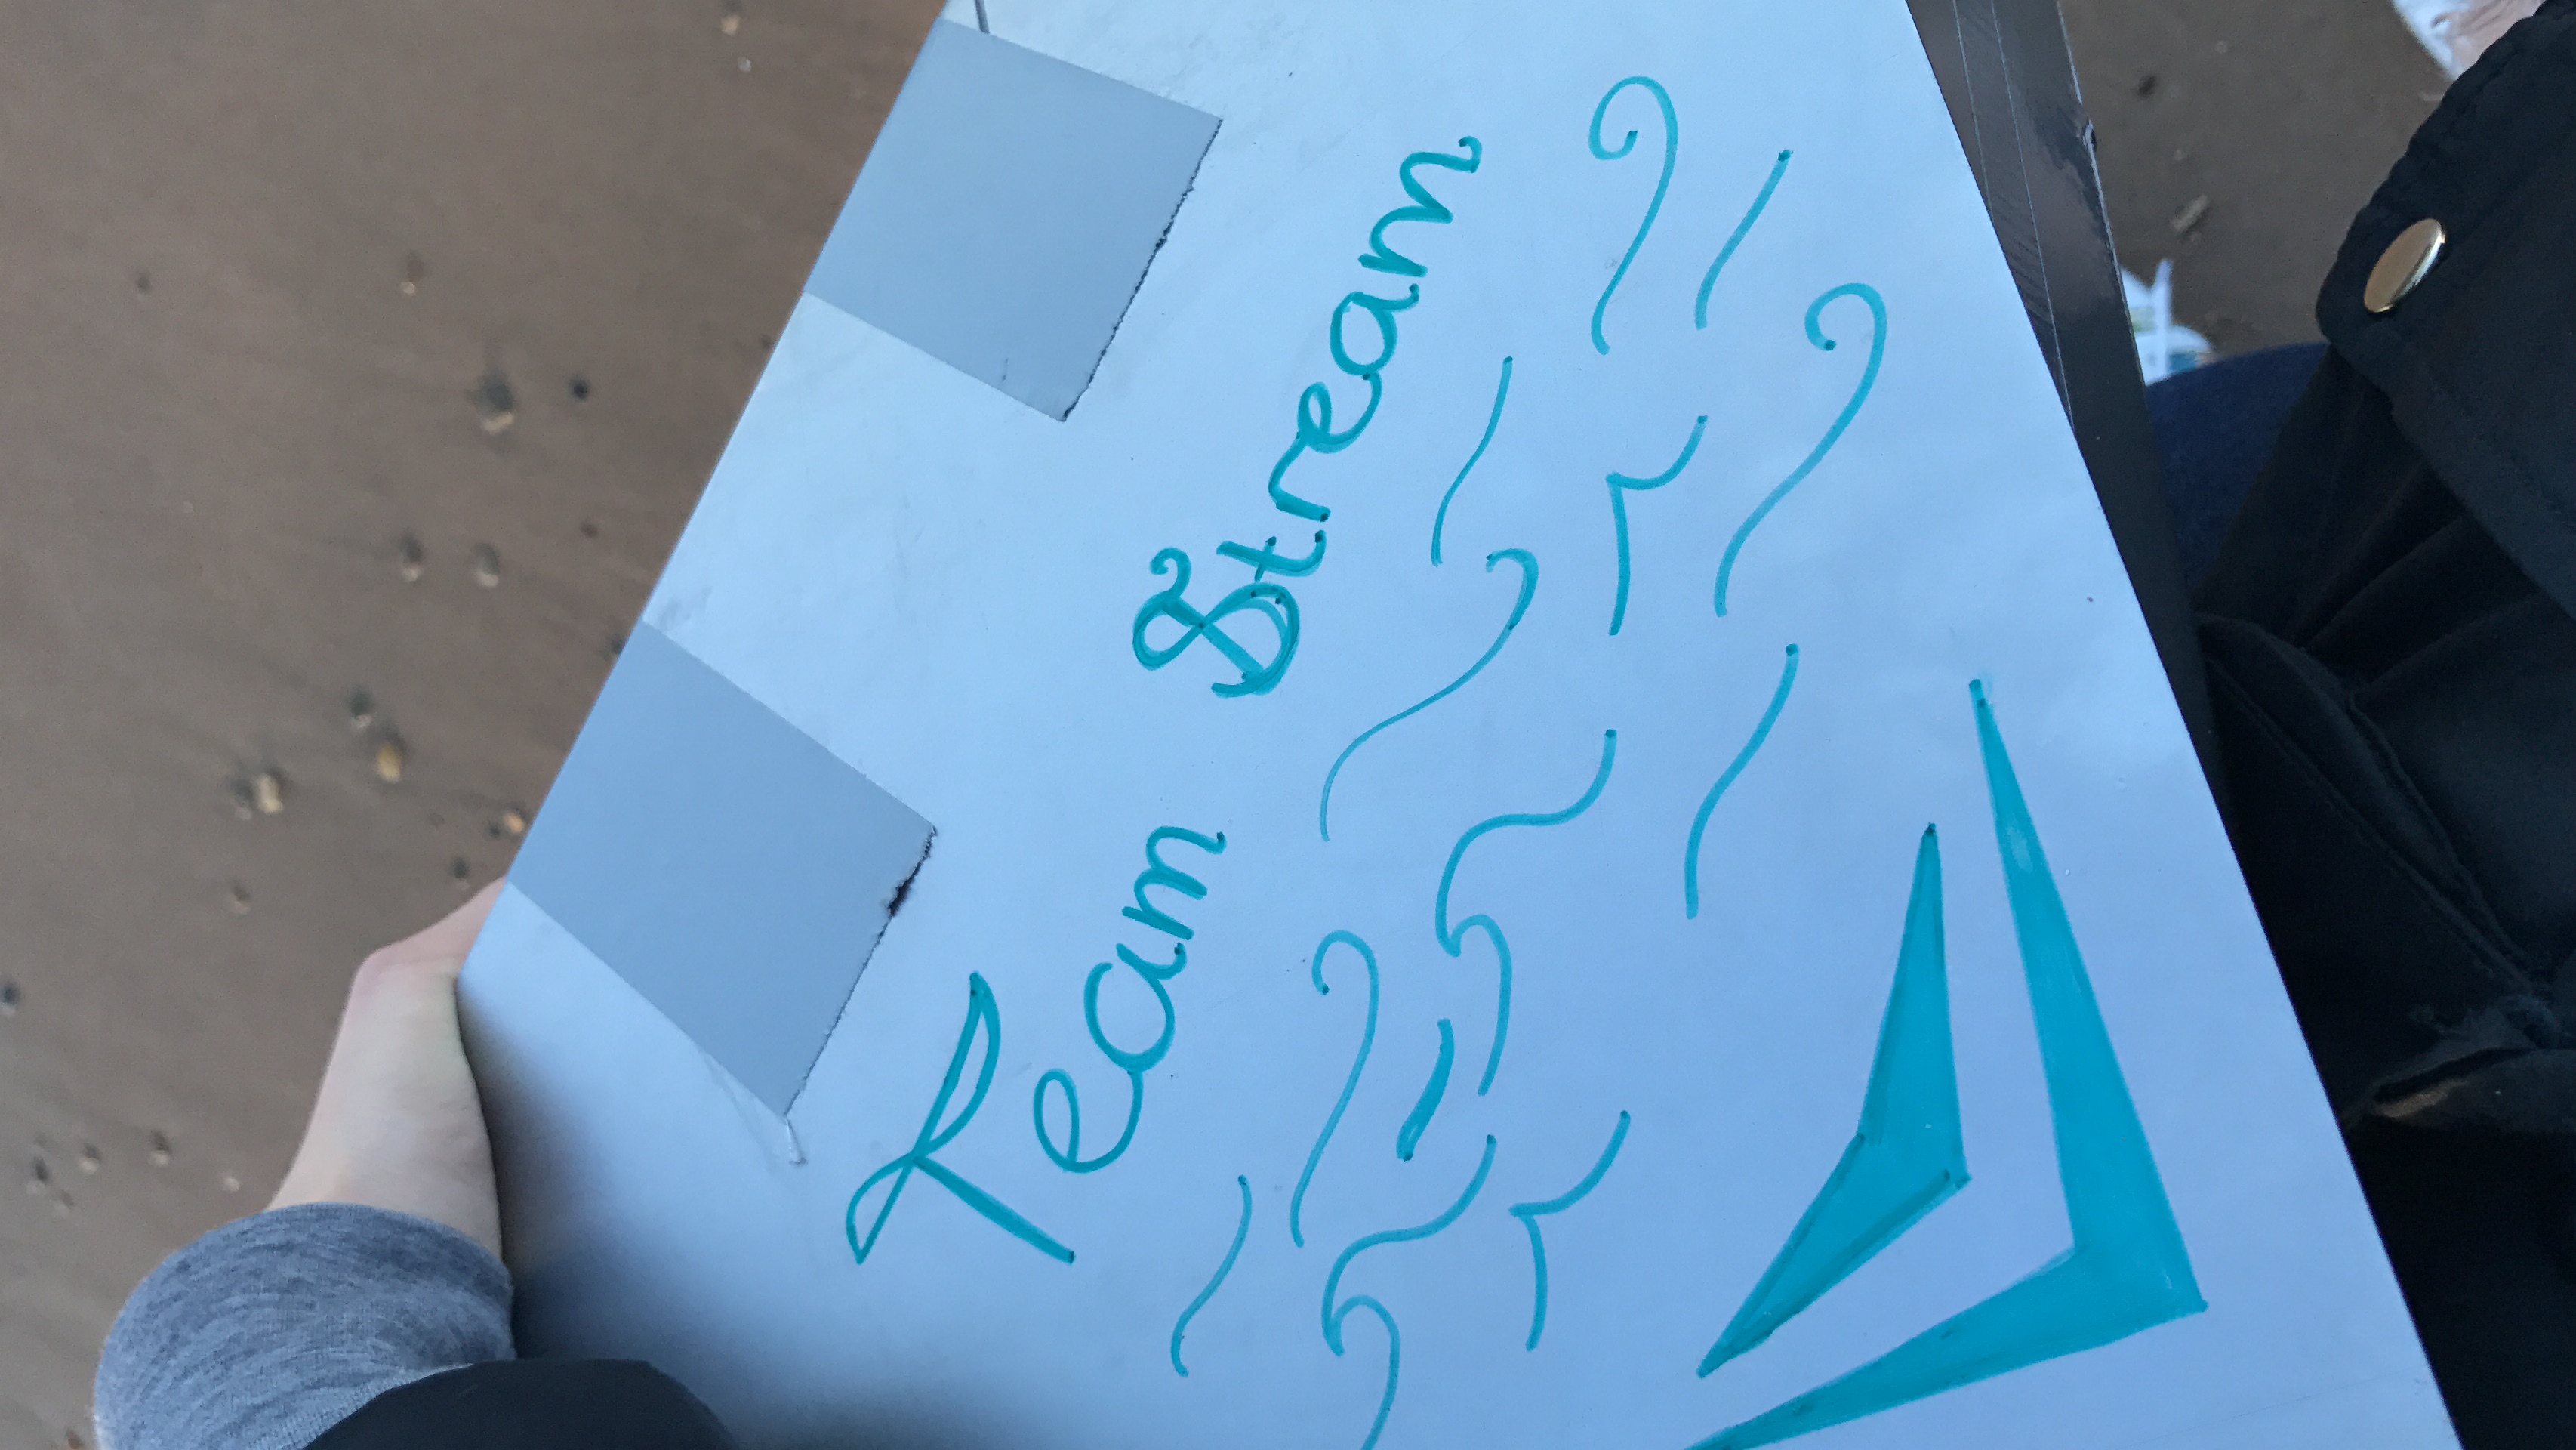 Team Stream